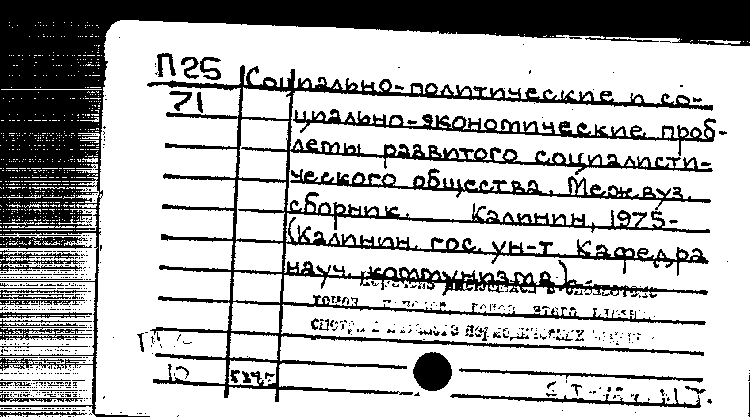 П25
71
Социально-политические и со-
циально-экономические проб-
лемы развитого социалисти-
ческого общества. Межвуз.
сборник. Калинин, 1975-
(Калинин. гос. ун-т. Кафедра
науч. коммунизма)
имеющихся в библиотеке
томов этого
смотри в каталоге периодических
10